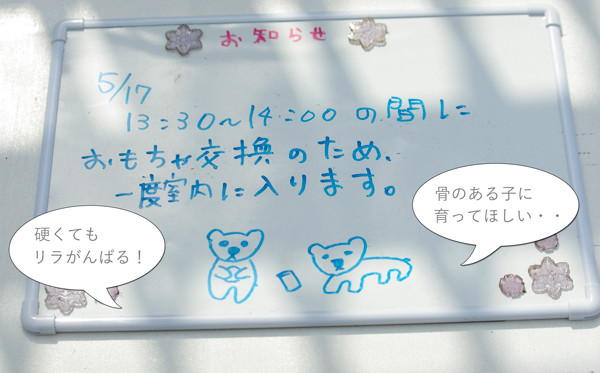 お知らせ
5/17
13:30~14:00の間に
おもちゃ交換のため、
一度室内に入ります。
硬くても
リラがんばる!
骨のある子に
育ってほしい・・